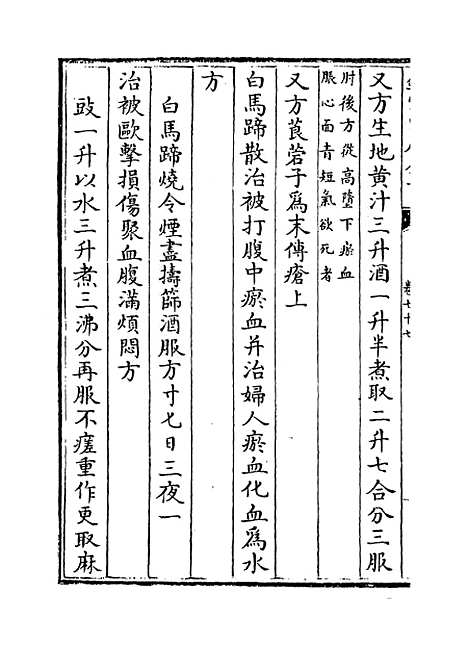 卷七十七
又方生地黄汁三升酒一升半煮取二升七合分三服
肘後方從高墮下瘀血
脹心面青短氣欲死者
又方莨菪子爲末傅瘡上
白馬蹄散治被打腹中瘀血并治婦人瘀血化血爲水
方
白馬蹄燒令煙盡擣篩酒服方寸匕日三夜一
治被毆擊損傷聚血腹滿煩悶方
豉一升以水三升煮三沸分再服不瘥重作更取麻